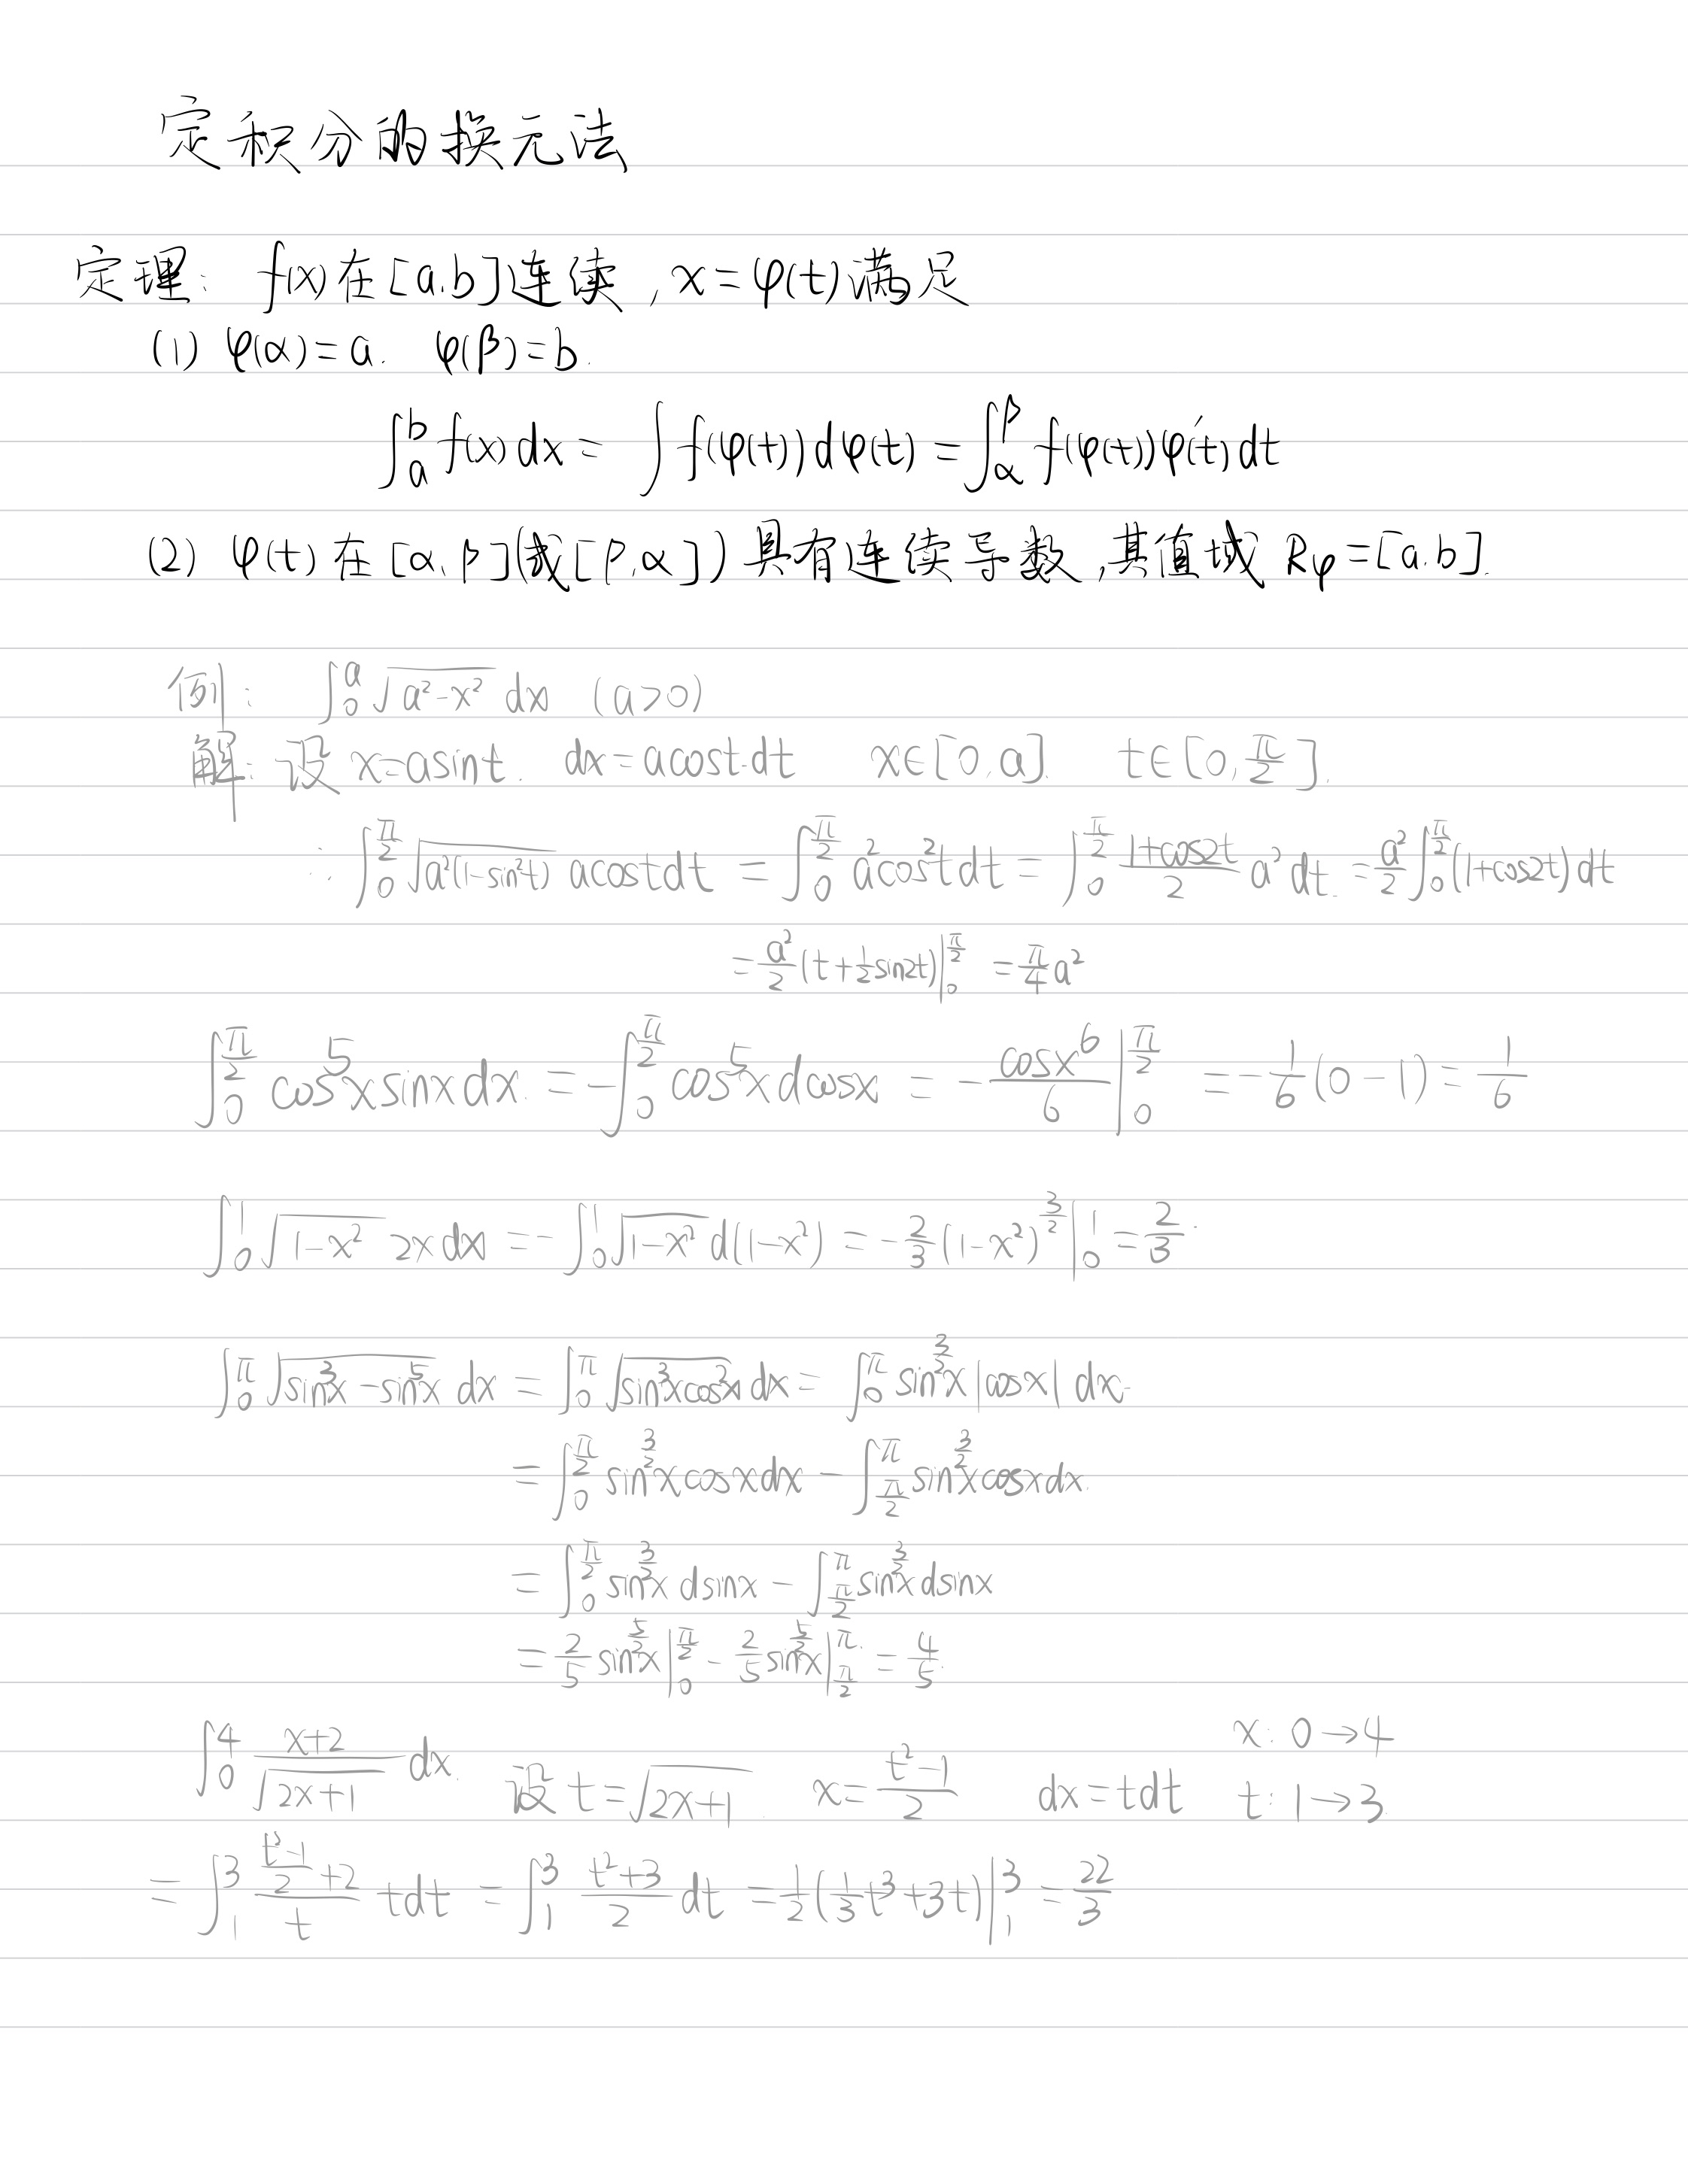 定积分的换元法
定理: f(x)在[a.b]连续,x=φ(t)满足
(1) φ(α)=a. φ(β)=b.
∫_a^b f(x)dx = ∫f(φ(t))dφ(t) = ∫_α^β f(φ(t))φ'(t)dt
(2) φ(t)在[α.β](或[β,α])具有连续导数,其值域 Rφ=[a.b].
例: ∫_0^a √(a²-x²) dx (a>0)
解: 设 x=asint. dx=acost·dt x∈[0,a]. t∈[0,π/2].
∴ ∫_0^{π/2} √(a²(1-sin²t)) acostdt = ∫_0^{π/2} a²cos²tdt = ∫_0^{π/2} (1+cos2t)/2 a²dt. = a²/2 ∫_0^{π/2} (1+cos2t)dt
= a²/2 (t+1/2 sin2t)|_0^{π/2} = π/4 a²
∫_0^{π/2} cos⁵xsinxdx. = -∫_0^{π/2} cos⁵xdcosx = -cosx⁶/6 |_0^{π/2} = -1/6(0-1) = 1/6
∫_0^1 √(1-x²) 2xdx = -∫_0^1 √(1-x²) d(1-x²) = -2/3 (1-x²)^{3/2} |_0^1 = 2/3.
∫_0^π √(sin³x-sin⁵x) dx = ∫_0^π √(sin³xcos²x) dx = ∫_0^π sin^{3/2}x|cosx|dx.
= ∫_0^{π/2} sin^{3/2}xcosxdx - ∫_{π/2}^π sin^{3/2}xcosxdx.
= ∫_0^{π/2} sin^{3/2}x dsinx - ∫_{π/2}^π sin^{3/2}xdsinx
= 2/5 sin^{5/2}x|_0^{π/2} - 2/5 sin^{5/2}x|_{π/2}^π = 4/5.
∫_0^4 (x+2)/√(2x+1) dx. 设 t=√(2x+1) x=(t²-1)/2 dx=tdt x: 0→4 t: 1→3.
= ∫_1^3 ((t²-1)/2+2)/t tdt = ∫_1^3 (t²+3)/2 dt = 1/2(1/3 t³+3t)|_1^3 = 22/3